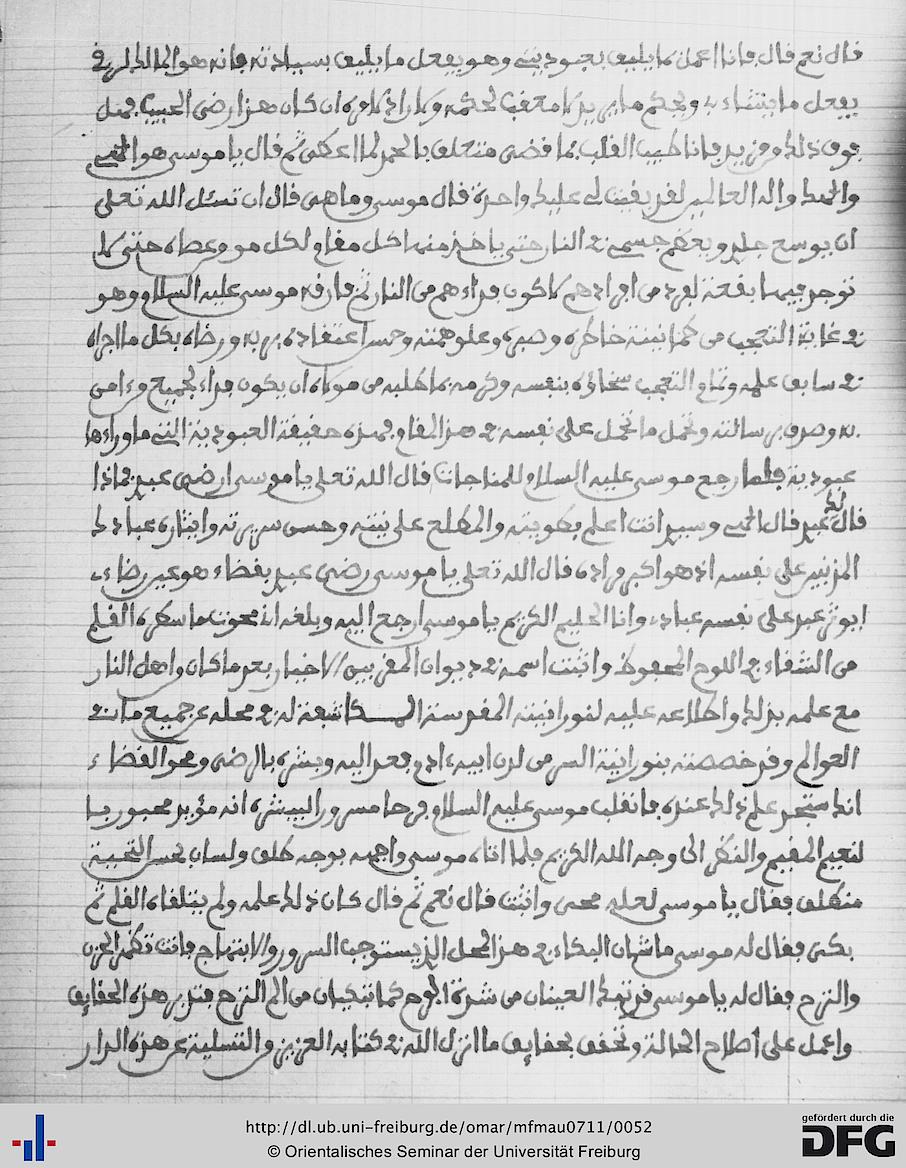 قال نعم قال فانا اعمل ما يليق بعبوديتي وهو يفعل ما يليق بسيادته فانه هو المالك الذي
يفعل ما يشاء ويحكم ما يريد لا معقب لحكمه ولا راد لامره ان كان هذا رضى الحبيب فمثل
فوق ذلك ومزيد فانا طيب القلب بما قضى متعلق بالحمد لما اعطى ثم قال يا موسى هو الهي
والهك واله العالمين لقد بقيت لي عليك واحدة قال موسى وما هي قال ان تسئل الله تعلى
ان يوسع جلدي ويعظم جسمي في النار حتى ياخذ منها كل مقام لكل موعود عطاه حتى لا
توجد فيها بقعة لفرد من افرادهم لاكون فداءهم من النار ثم فارقه موسى عليه السلام وهو
في غاية التعجب من طمانينة خاطره وصبره وعلو همته وحسن اعتقاده بربه ورضاه بكل ما اجراه
في سابق علمه وتمام التعجب سخاؤه بنفسه وكرمه بما طلبه من مولاه ان يكون فداء لجميع من ءامن
به وصدق برسالته وتحمل ما تحمل على نفسه في هذا المقام فهذه حقيقة العبودية التي ما وراءها
عبودية فلما رجع موسى عليه السلام للمناجات قال الله تعلى يا موسى ارضي عبدي بماذا
قال لك عبدي قال الهي وسيدي انت اعلم بطويته والمطلع على نيته وحسن سريرته وايثاره عبادك
المذنبين على نفسه اذ هو اكبر مراده قال الله تعلى يا موسى رضي عبدي بقضاءي هو عين رضاءي
ايوثر عبدي على نفسه عبادي وانا الحليم الكريم يا موسى ارجع اليه وبلغه اني محوت ما سطره القلم
من الشقاء في اللوح المحفوظ واثبت اسمه في ديوان المقربين الاخيار بعد ما كان من اهل النار
مع علمه بذلك واطلاعه عليه لنورانيته المقدسة الكاشفة له في محله عن جميع ما في
العوالم وقد خصصته بنورانية السر من لدن ابيه ءادم فعد اليه وبشره بالرضى ومحو القضاء
انك ستجد علم ذلك عنده فانقلب موسى عليه السلام فرحا مسرورا ليبشره انه مؤبد محبور بـ
لنعيم المقيم والنظر الى وجه الله الكريم فلما اتاه موسى واجهه بوجه طلق ولسان بحسن التحية
منطلق فقال يا موسى لعله محى واثبت قال نعم ثم قال كان ذلك علمه ولم يتلقاه القلم ثم
بكى فقال له موسى ما شان البكاء في هذا المحل الذي يستوجب السرور والابتهاج فانت تظهر الحزن
والترح فقال له يا موسى قد تبكي العينان من شدة الفرح كما تبكيان من الم الترح فتدبر هذه الحقايق
واعمل على اصلاح الحالة وتحقق بحقايق ما انزل الله في كتابه العزيز من التسلية عن هذه الدار
http://dl.ub.uni-freiburg.de/omar/mfmau0711/0052
© Orientalisches Seminar der Universität Freiburg
gefördert durch die
DFG